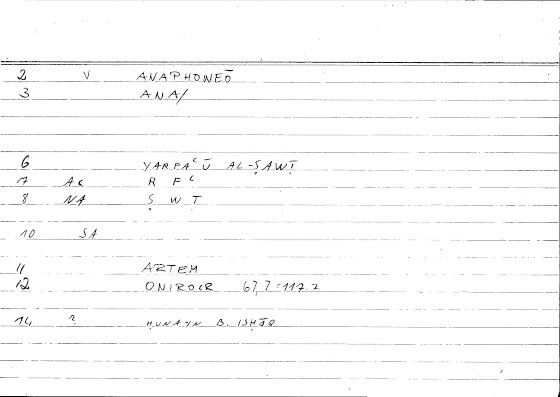 2 V ANAPHONEŌ
3 ANA/
6 YARFAʿU AL-ṢAWT
7 AC R F ʿ
8 NA Ṣ W T
10 SA
11 ARTEM
12 ONIROCR 67,7=117.2
14 ? ḤUNAYN B. ISḤĀQ